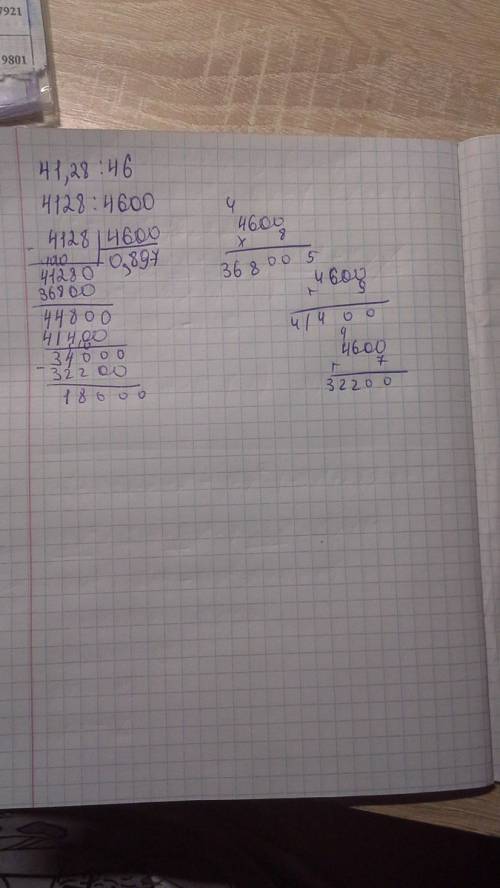 7921
9801
41,28 : 46
4128 : 4600
- 4128 | 4600
0,897
41280
36800
44800
41400
34000
- 32200
18000
4
4600
x 8
36800
5
4600
9
41400
4
4600
7
32200